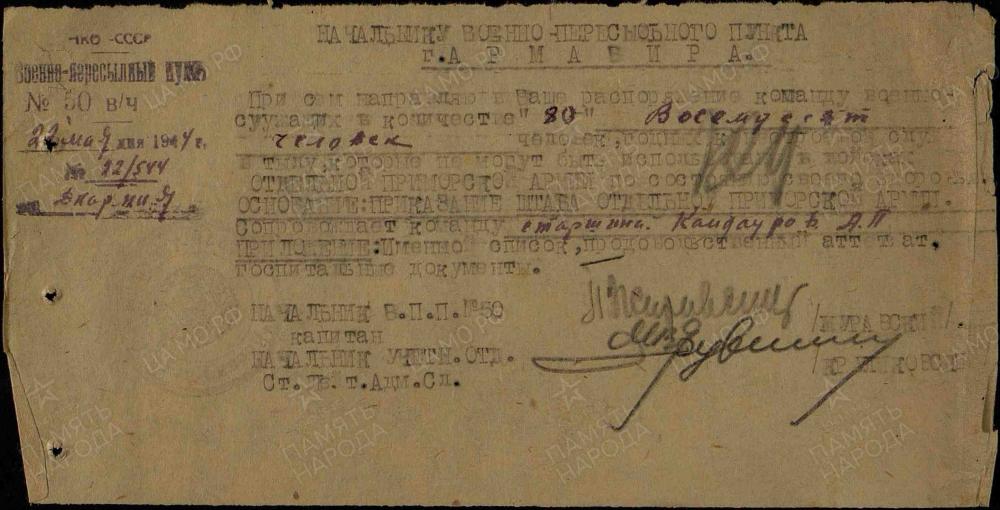 НКО -СССР
Военно-пересылный пунк
№ 50 в/ч
22 мая 1944 г.
№ 12/544
НАЧАЛЬНИКУ ВОЕННО-ПЕРЕСЫБНОГО ПУНКТА
г.АРМАВИРА.
При сем направляю в Ваше распоряжение команду военно-
служащих в количестве "80" Восемдесят
человек человек, годных к
в тылу, которые не могут быть использ в войсках
ОТДЕЛЬНОЙ ПРИМОРСКОЙ АРМИИ по состоянию своего здоровья
ОСНОВАНИЕ: ПРИКАЗАНИЕ ШТАБА ОТДЕЛЬНОЙ ПРИМОРСКОЙ АРМИИ.
Сопровождает команду старшина Кандауров А.П
ПРИЛОЖЕНИЕ: Именной список, продовольственный аттестат,
госпитальные документы.
НАЧАЛЬНИК В.П.П.№50
капитан
/ЖУРАВСКИЙ/
НАЧАЛЬНИК УЧЕТН.ОТД.
Ст. Ле-т. Адм. Сл.
ПАМЯТЬ НАРОДА
ЦА МО.РФ